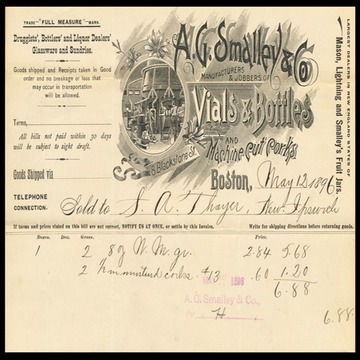 TRADE "FULL MEASURE" MARK.
Druggists', Bottlers' and Liquor Dealers'
Glassware and Sundries.
Goods shipped and Receipts taken in Good
order and no breakage or loss that
may occur in transportation
will be allowed.
Terms,
All bills not paid within 30 days
will be subject to sight draft.
Goods Shipped via
TELEPHONE
CONNECTION.
A. G. Smalley & Co
MANUFACTURERS
& JOBBERS OF
Vials & Bottles
AND
Machine Cut Corks
Blackstone St.
Boston, May 12 1896
LARGEST DEALERS IN NEW ENGLAND STATES OF
Mason, Lightning and Smalley's Fruit Jars.
Sold to S. A. Thayer, New Ipswich
If terms and prices stated on this bill are not correct, NOTIFY US AT ONCE, or settle by this invoice. Write for shipping directions before returning goods.
Boxes. Doz. Gross. Price.
1 2 8 oz W. M. gr. 2.84 5.68
2 mustard corks #13 .60 1.20
6.88
1896
A. G. Smalley & Co.,
H
6.88